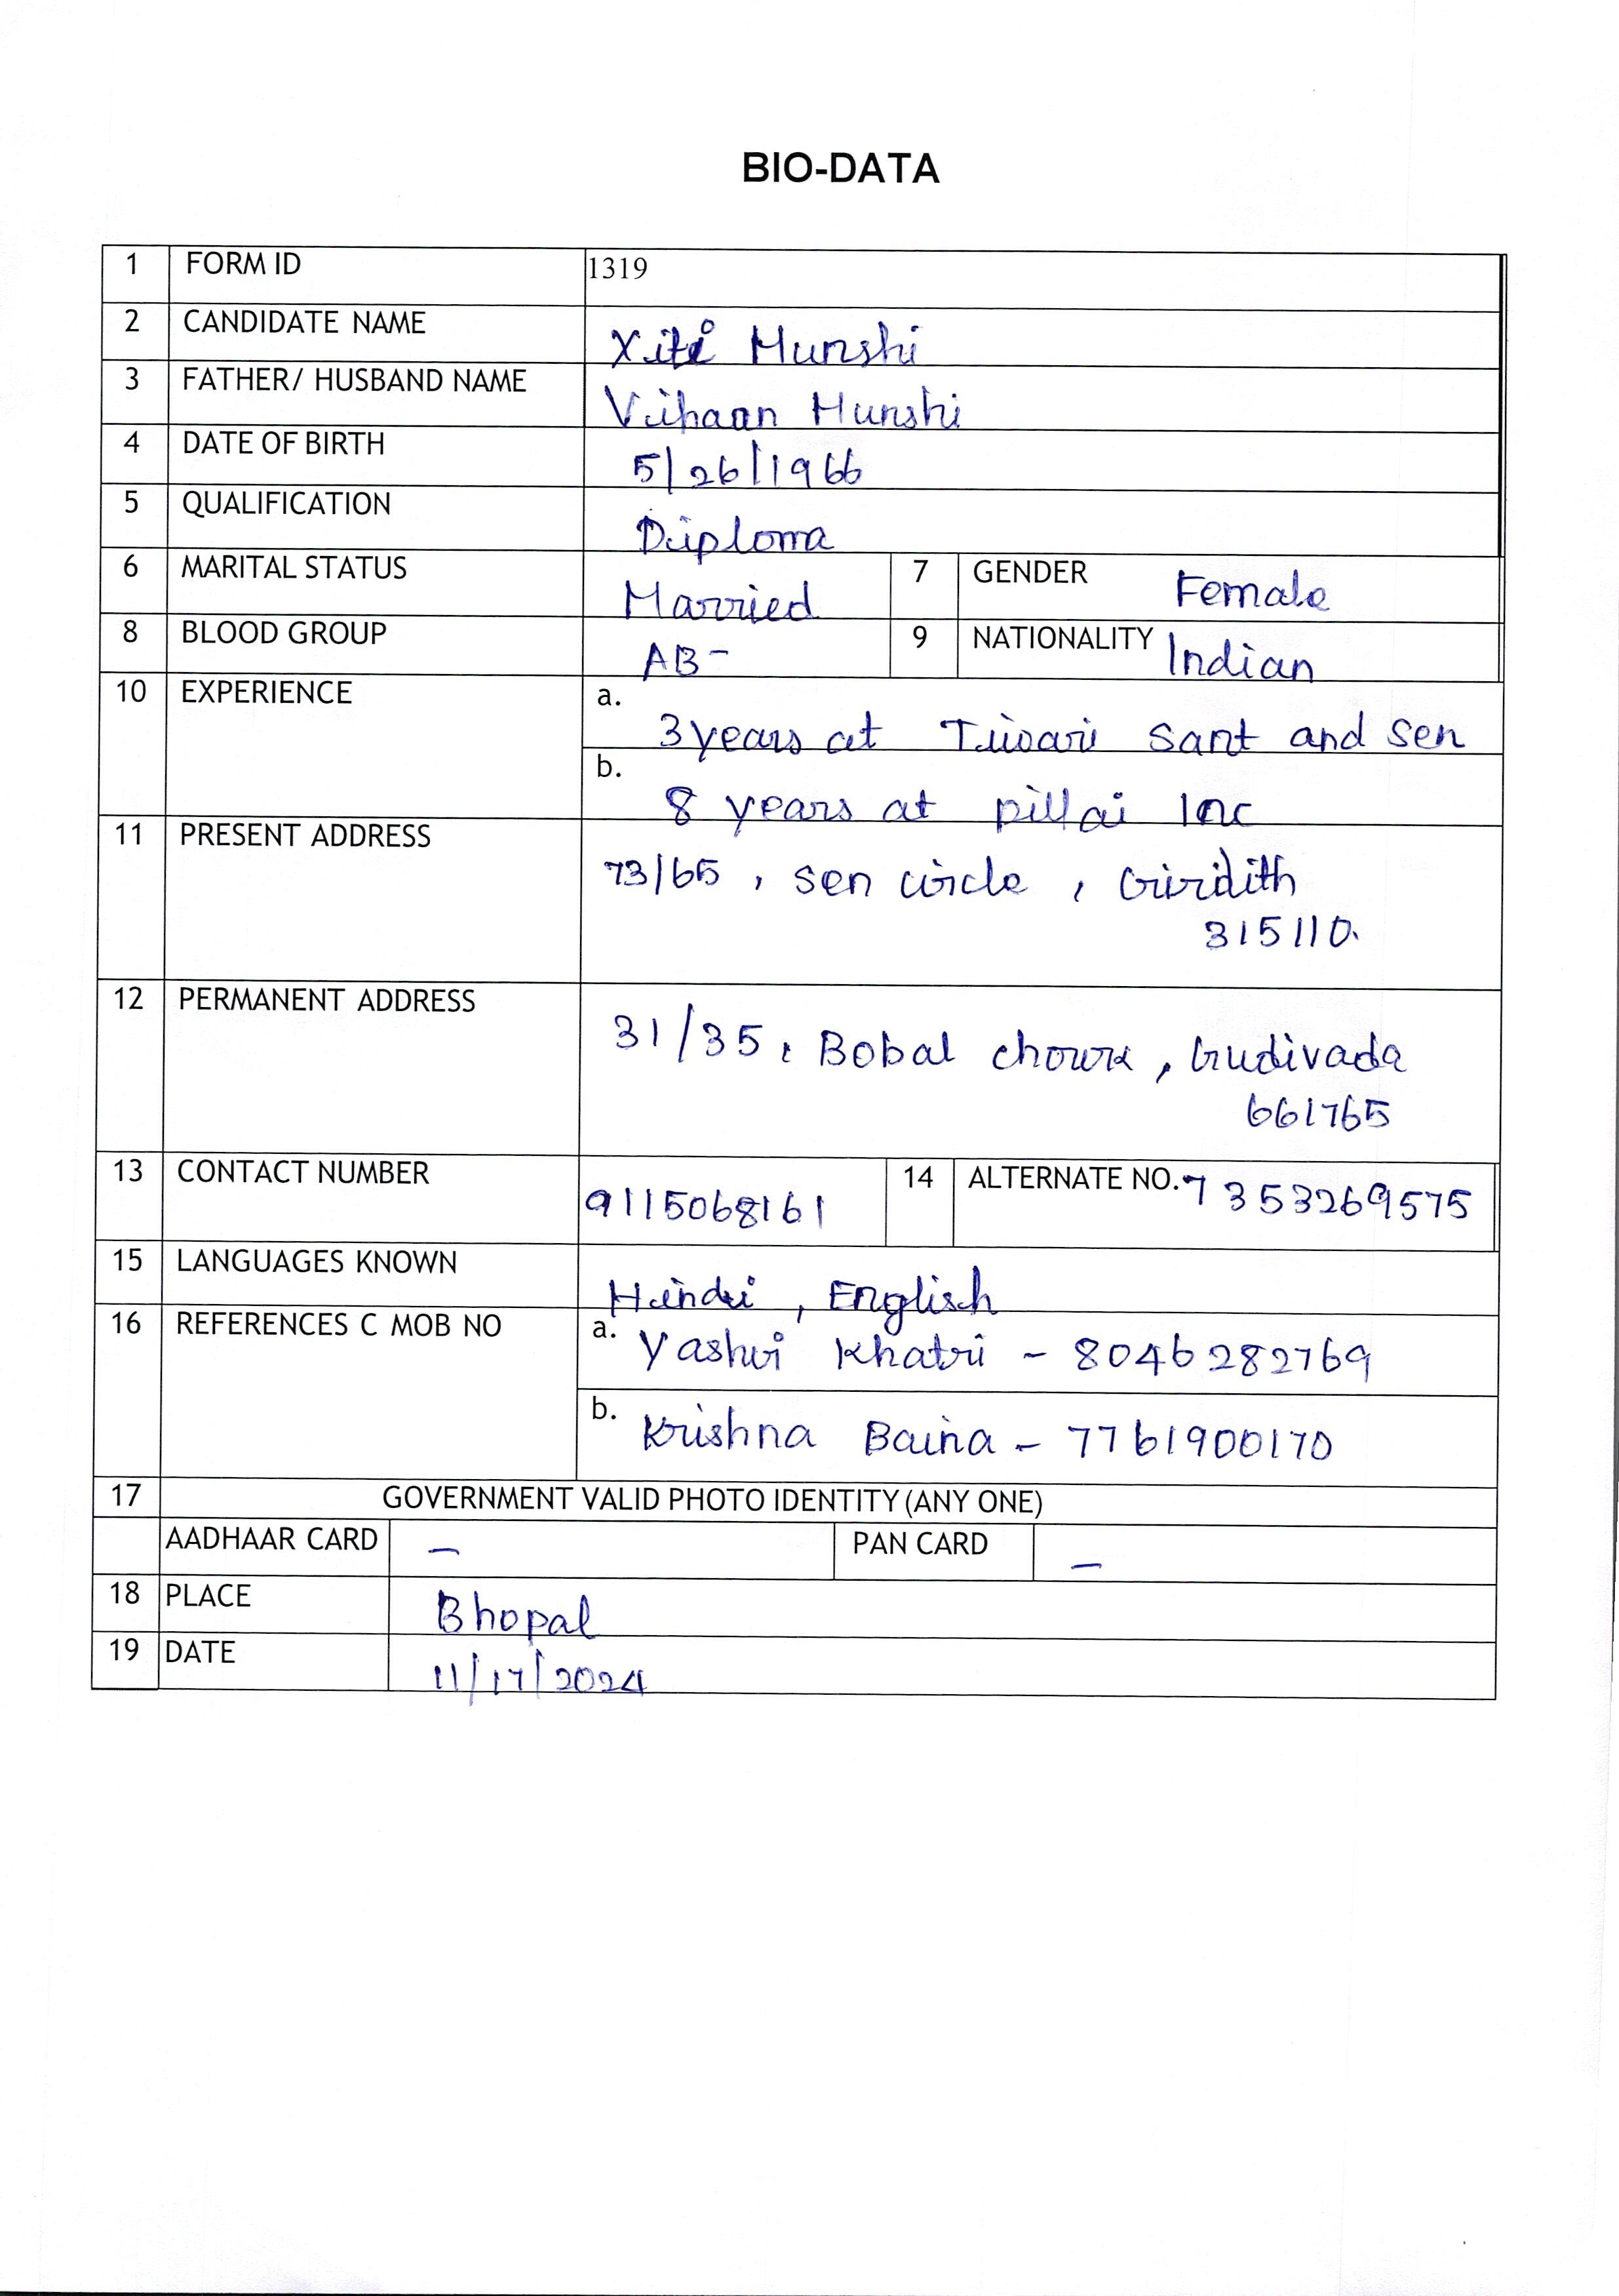 BIO-DATA
1 FORM ID 1319
2 CANDIDATE NAME Xiti Munshi
3 FATHER/ HUSBAND NAME Vihaan Munshi
4 DATE OF BIRTH 5/26/1966
5 QUALIFICATION Diploma
6 MARITAL STATUS Married 7 GENDER Female
8 BLOOD GROUP AB- 9 NATIONALITY Indian
10 EXPERIENCE a. 3 years at Tiwari Sant and Sen
b. 8 years at pillai Inc
11 PRESENT ADDRESS 73/65, Sen circle,
315110.
12 PERMANENT ADDRESS 31/35, Bobal chowk, Gudivada
661765
13 CONTACT NUMBER 9115068161 14 ALTERNATE NO. 7353269575
15 LANGUAGES KNOWN Hindi, English
16 REFERENCES C MOB NO a. Yashvi Khatri - 8046282769
b. Krishna Baina - 7761900170
17 GOVERNMENT VALID PHOTO IDENTITY (ANY ONE)
AADHAAR CARD - PAN CARD -
18 PLACE Bhopal
19 DATE 11/17/2024